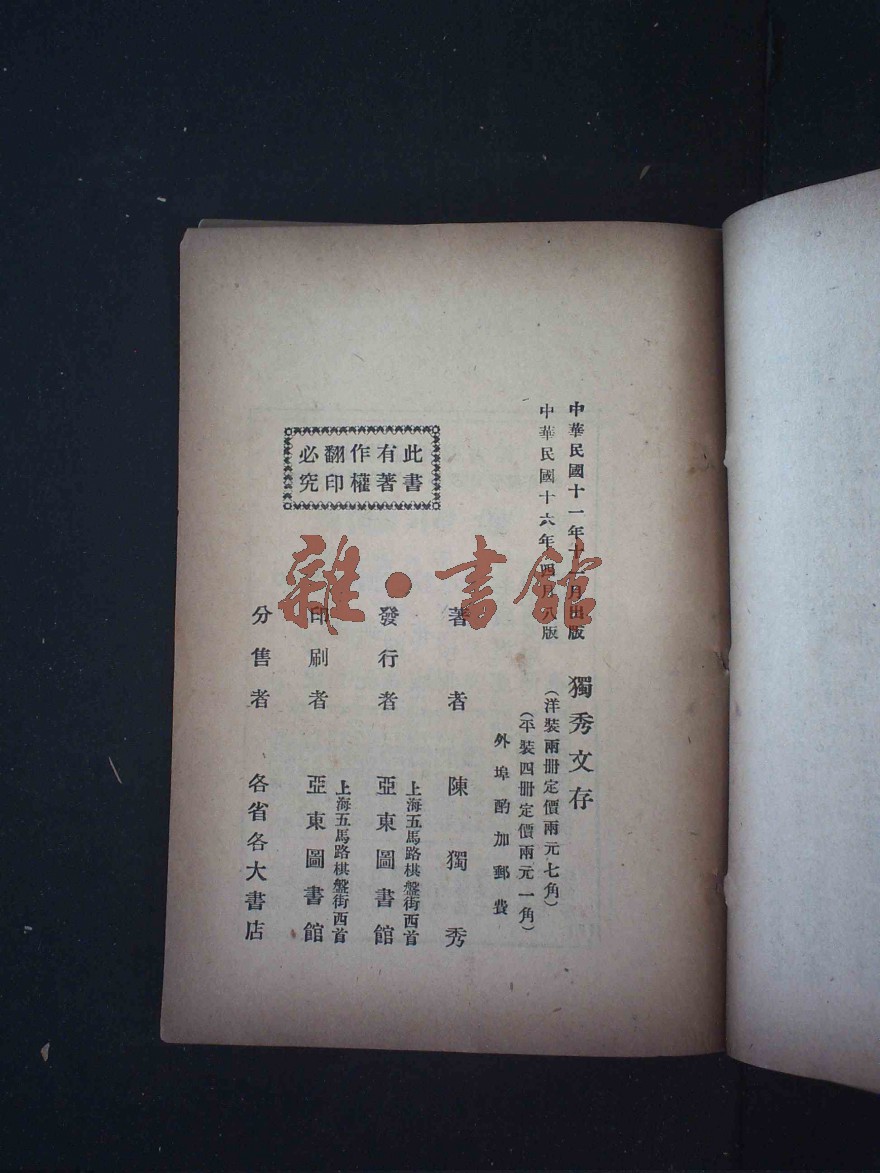 中華民國十一年十一月出版
中華民國十六年四月八版
獨秀文存
(洋裝兩册定價兩元七角)
(平裝四册定價兩元一角)
外埠酌加郵費
此書
有著
作權
翻印
必究
著者 陳獨秀
發行者 上海五馬路棋盤街西首
亞東圖書館
印刷者 上海五馬路棋盤街西首
亞東圖書館
分售者 各省各大書店
雜·書館